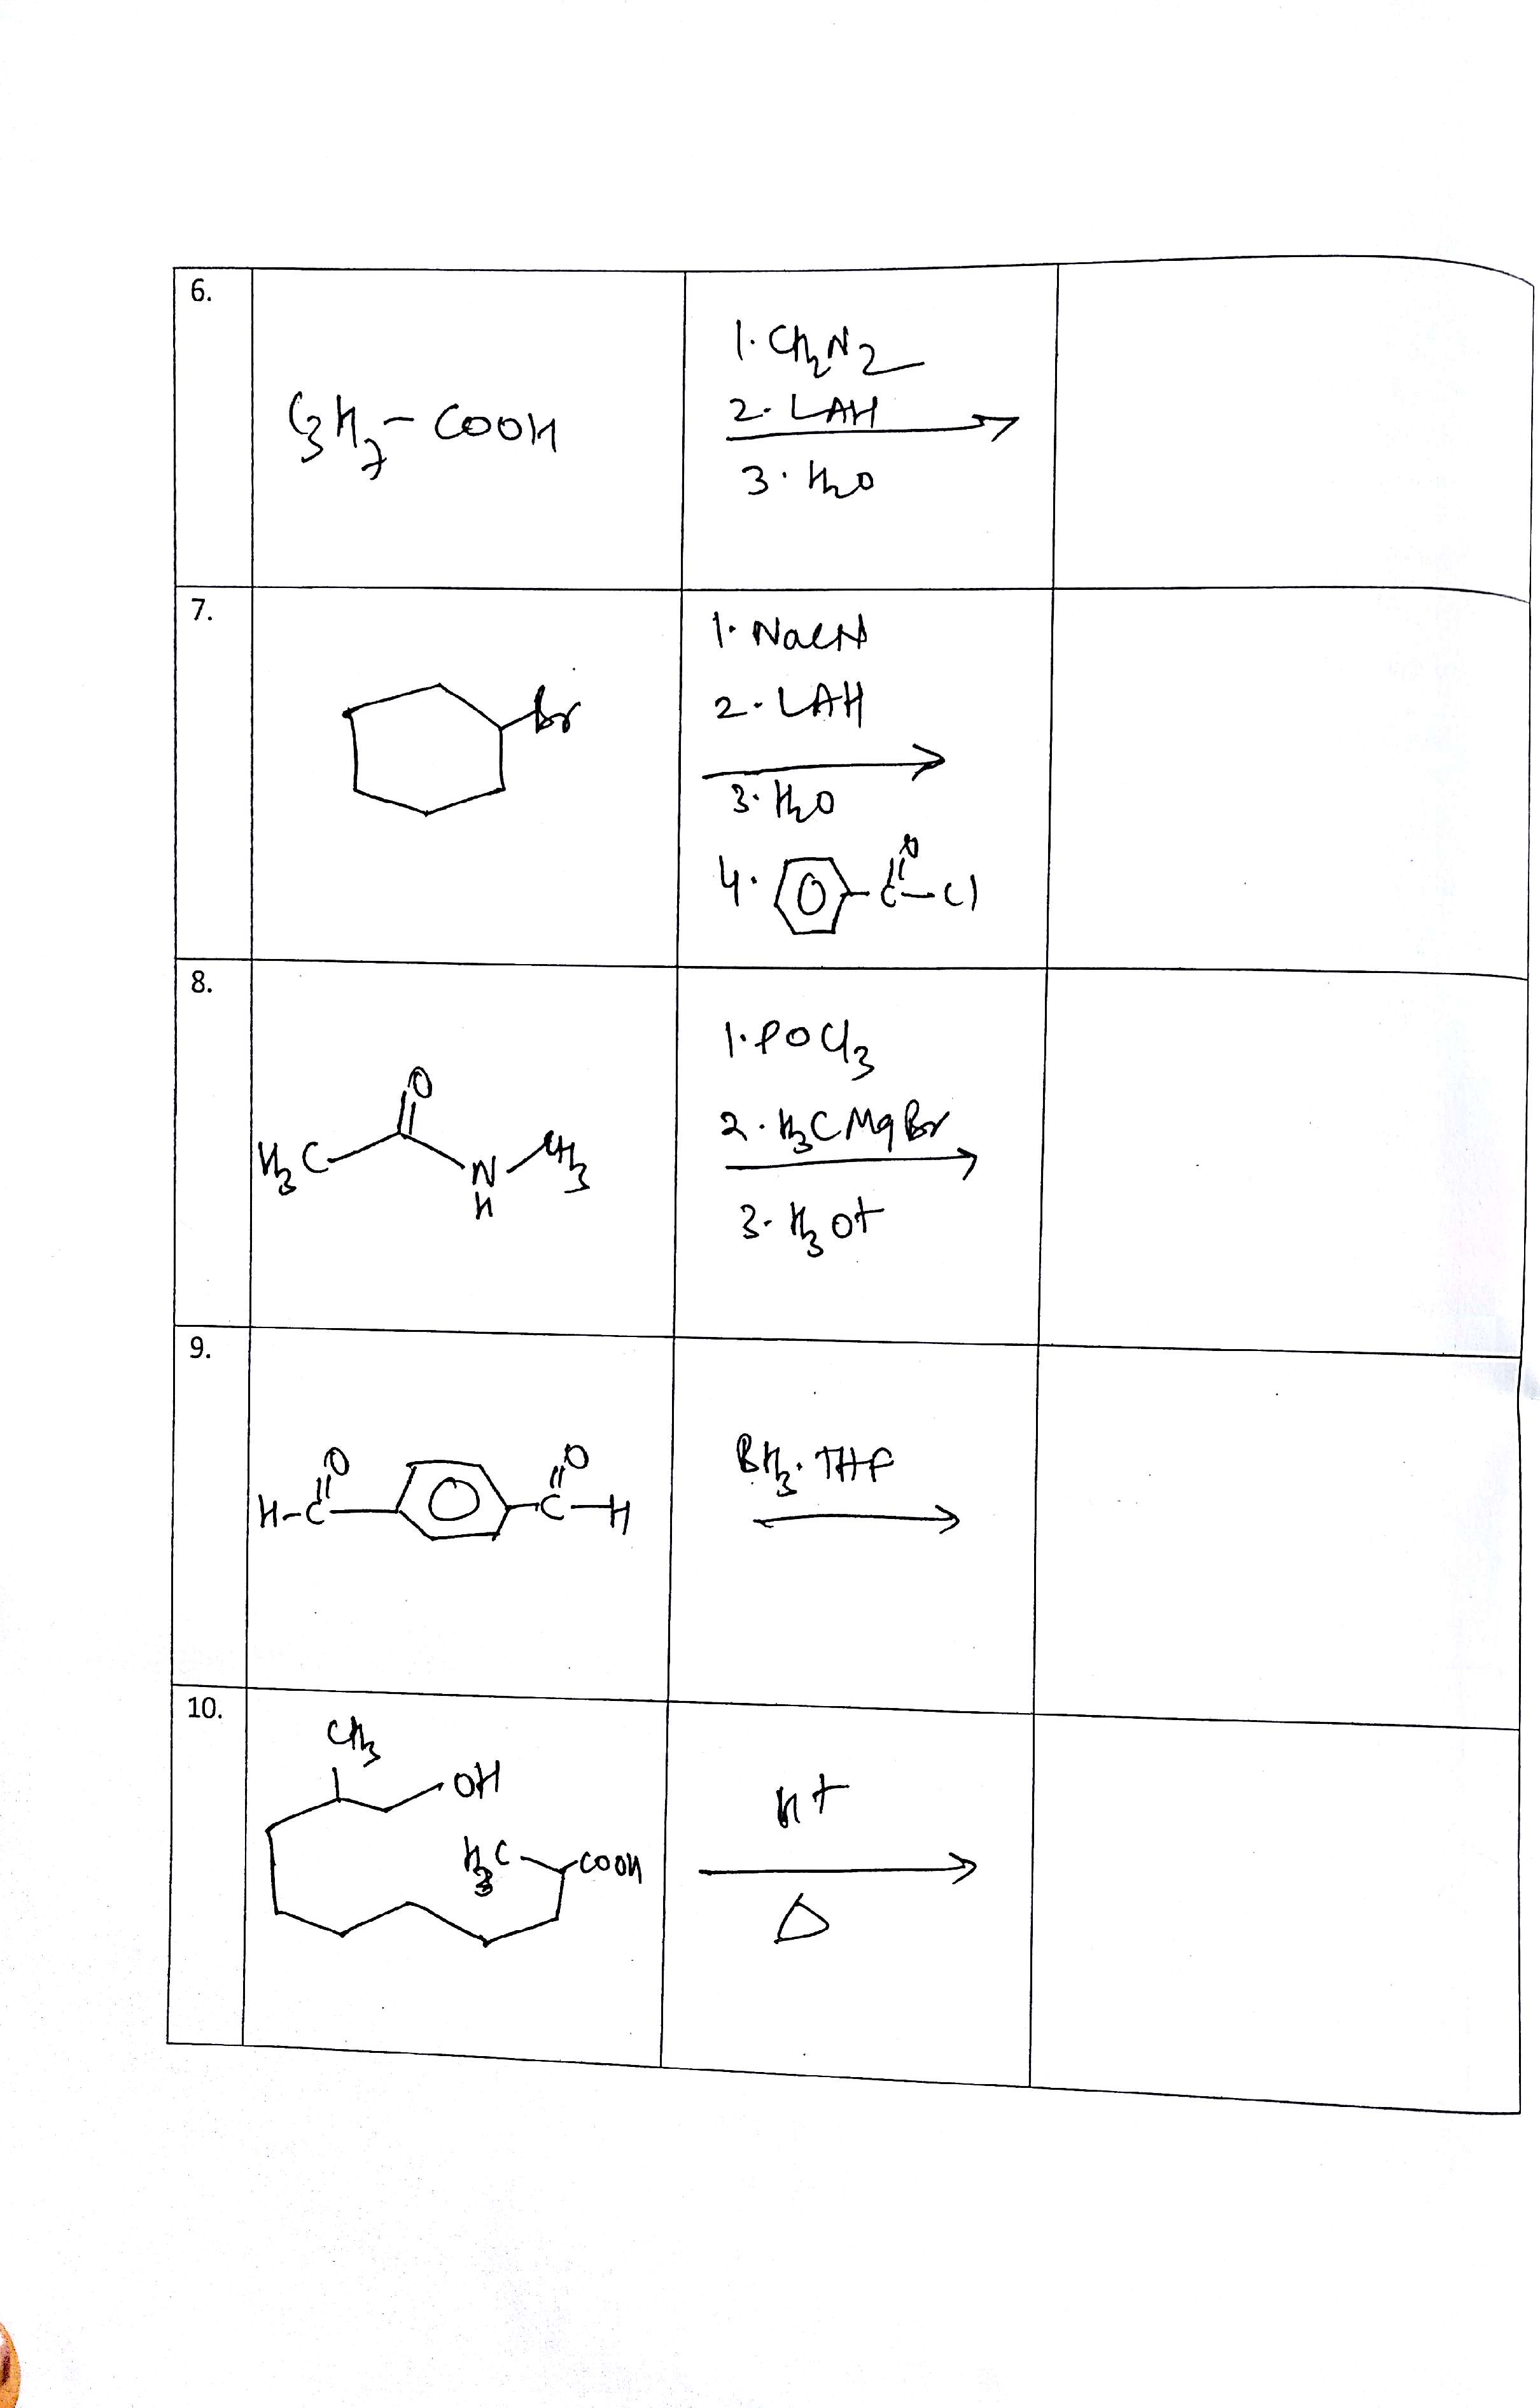 6.
C3H7-COOH
1. CH2N2
2. LAH
3. H2O
7.
Br
1. NaCN
2. LAH
3. H2O
4.
O
C-Cl
8.
O
H3C
N
H
CH3
1. POCl3
2. H3CMgBr
3. H3O+
9.
O
O
H-C
C-H
BH3.THF
10.
CH3
OH
H3C
COOH
H+
Δ